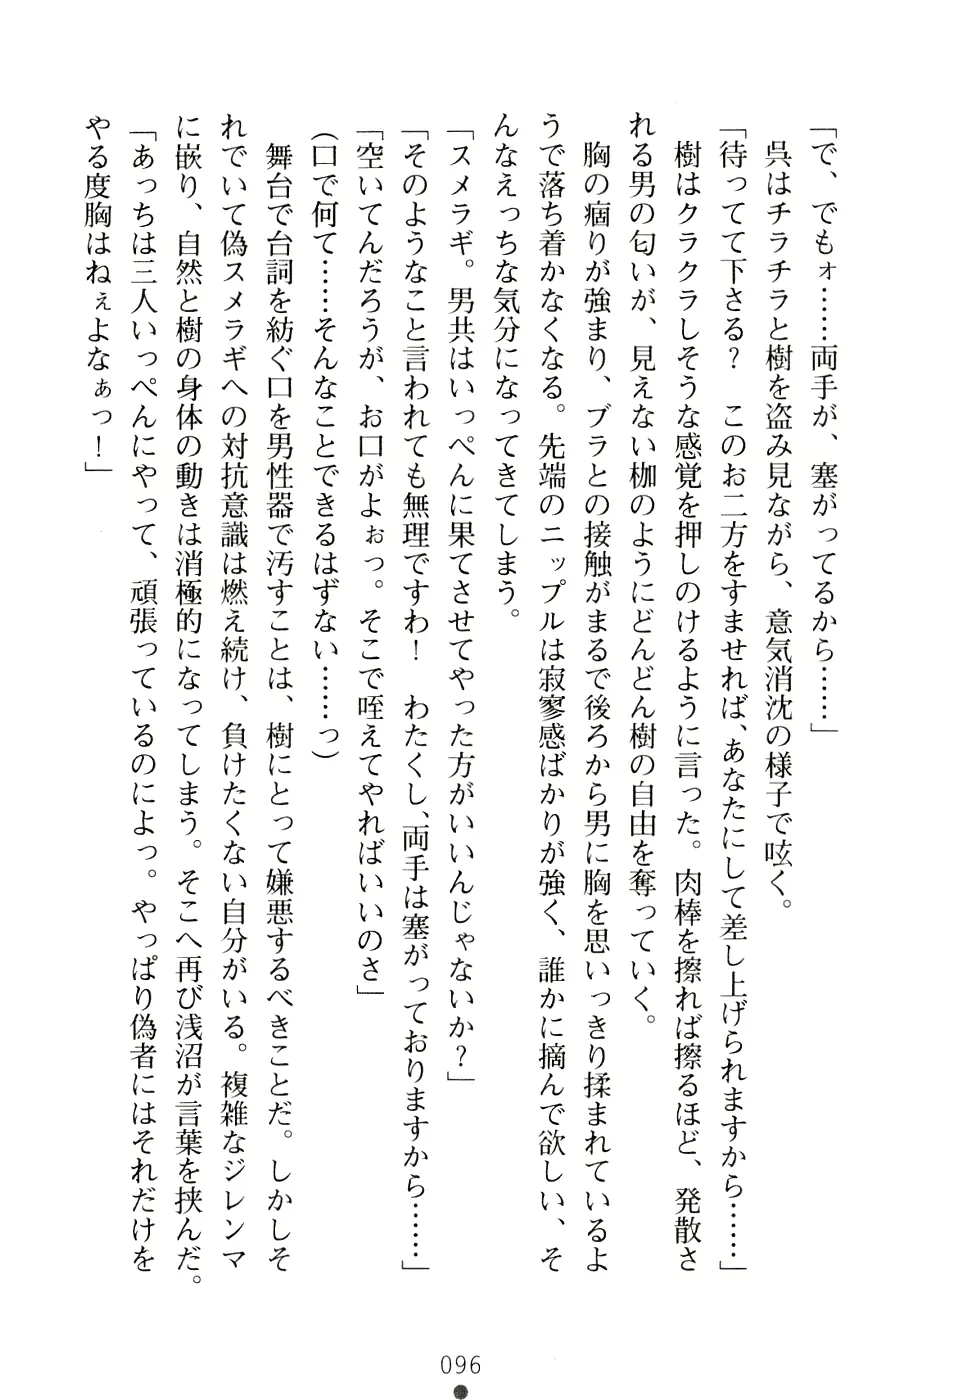 「で、でもォ……両手が、塞がってるから……」
　呉はチラチラと樹を盗み見ながら、意気消沈の様子で呟く。
「待ってて下さる？　このお二方をすませれば、あなたにして差し上げられますから……」
　樹はクラクラしそうな感覚を押しのけるように言った。肉棒を擦れば擦るほど、発散さ
れる男の匂いが、見えない枷のようにどんどん樹の自由を奪っていく。
　胸の痼りが強まり、ブラとの接触がまるで後ろから男に胸を思いっきり揉まれているよ
うで落ち着かなくなる。先端のニップルは寂寥感ばかりが強く、誰かに摘んで欲しい、そ
んなえっちな気分になってきてしまう。
「スメラギ。男共はいっぺんに果てさせてやった方がいいんじゃないか？」
「そのようなこと言われても無理ですわ！　わたくし、両手は塞がっておりますから……」
「空いてんだろうが、お口がよぉっ。そこで咥えてやればいいのさ」
（口で何て……そんなことできるはずない……っ）
　舞台で台詞を紡ぐ口を男性器で汚すことは、樹にとって嫌悪するべきことだ。しかしそ
れでいて偽スメラギへの対抗意識は燃え続け、負けたくない自分がいる。複雑なジレンマ
に嵌り、自然と樹の身体の動きは消極的になってしまう。そこへ再び浅沼が言葉を挟んだ。
「あっちは三人いっぺんにやって、頑張っているのによっ。やっぱり偽者にはそれだけを
やる度胸はねぇよなぁっ！」
096